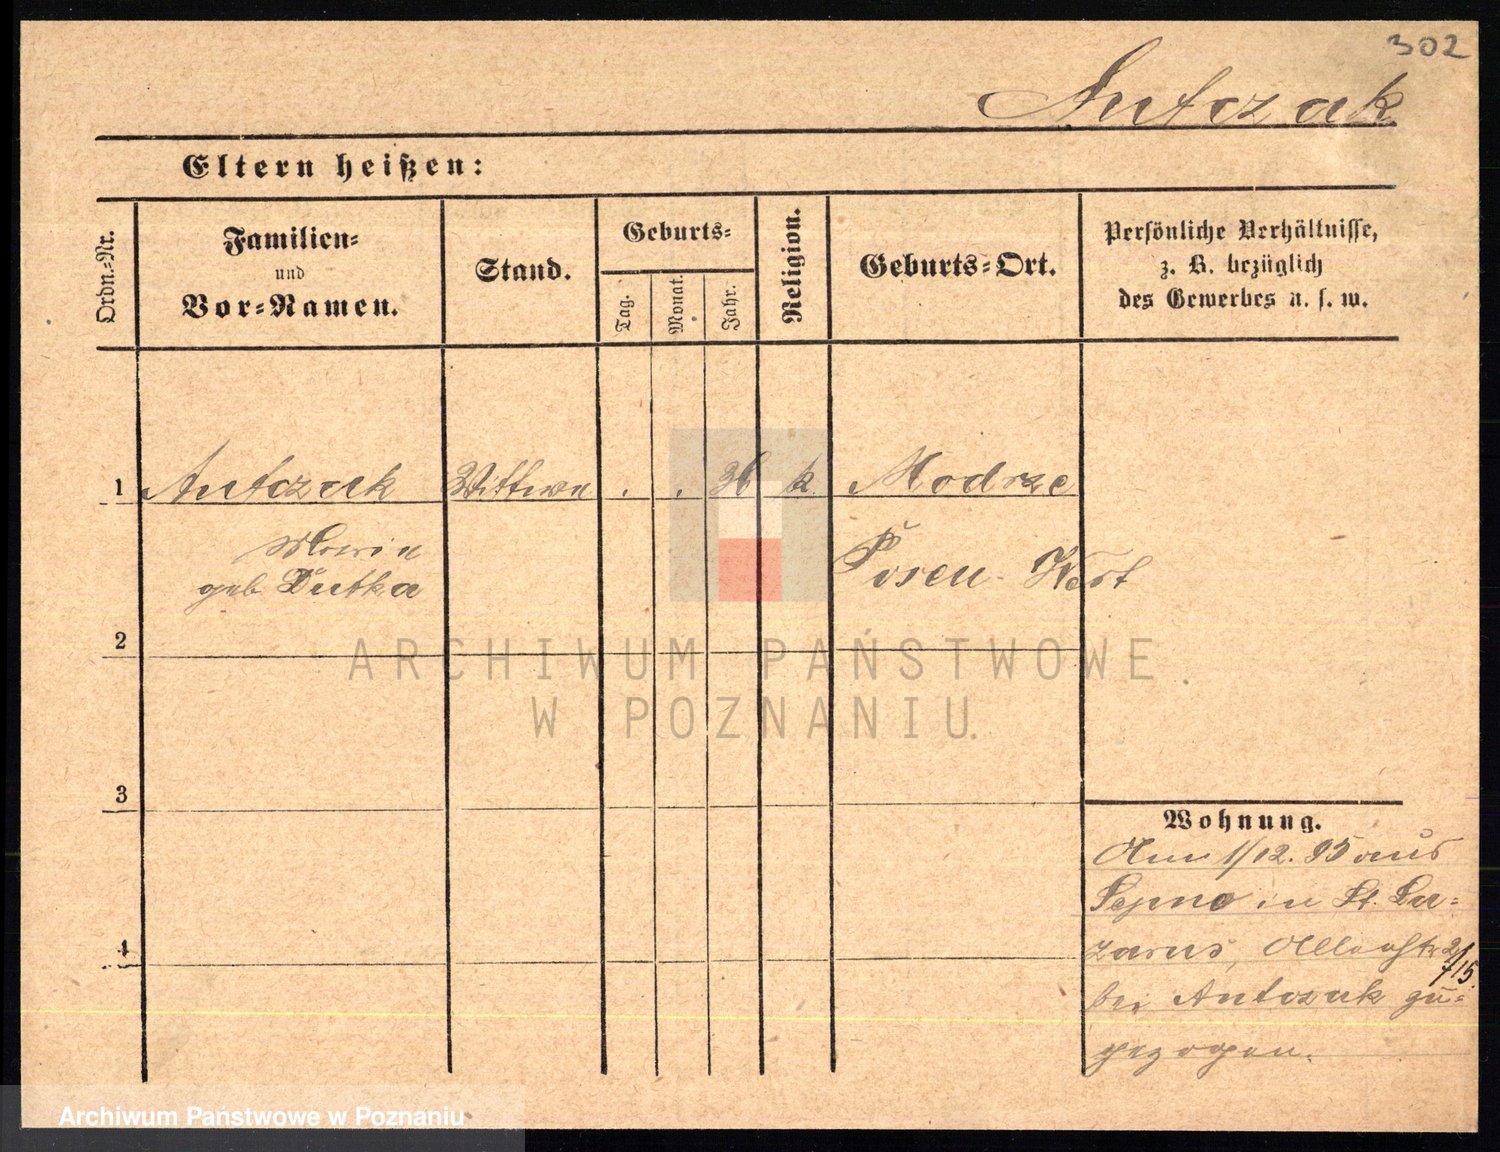 302
Antczak
Eltern heißen:
Ordn.-Nr.
Familien-
und
Vor-Namen.
Stand.
Geburts-
Tag.
Monat.
Jahr.
Religion.
Geburts-Ort.
Persönliche Verhältnisse,
z. B. bezüglich
des Gewerbes u. s. w.
1 Antczak Wittwe . . 36 k. Modrze
Marie
geb Dutka
Posen-West
2
3
4
Wohnung.
Am 1/12. 95 aus
in St. La-
zarus,
bei Antczak zu-
gezogen.
ARCHIWUM PAŃSTWOWE
W POZNANIU
Archiwum Państwowe w Poznaniu